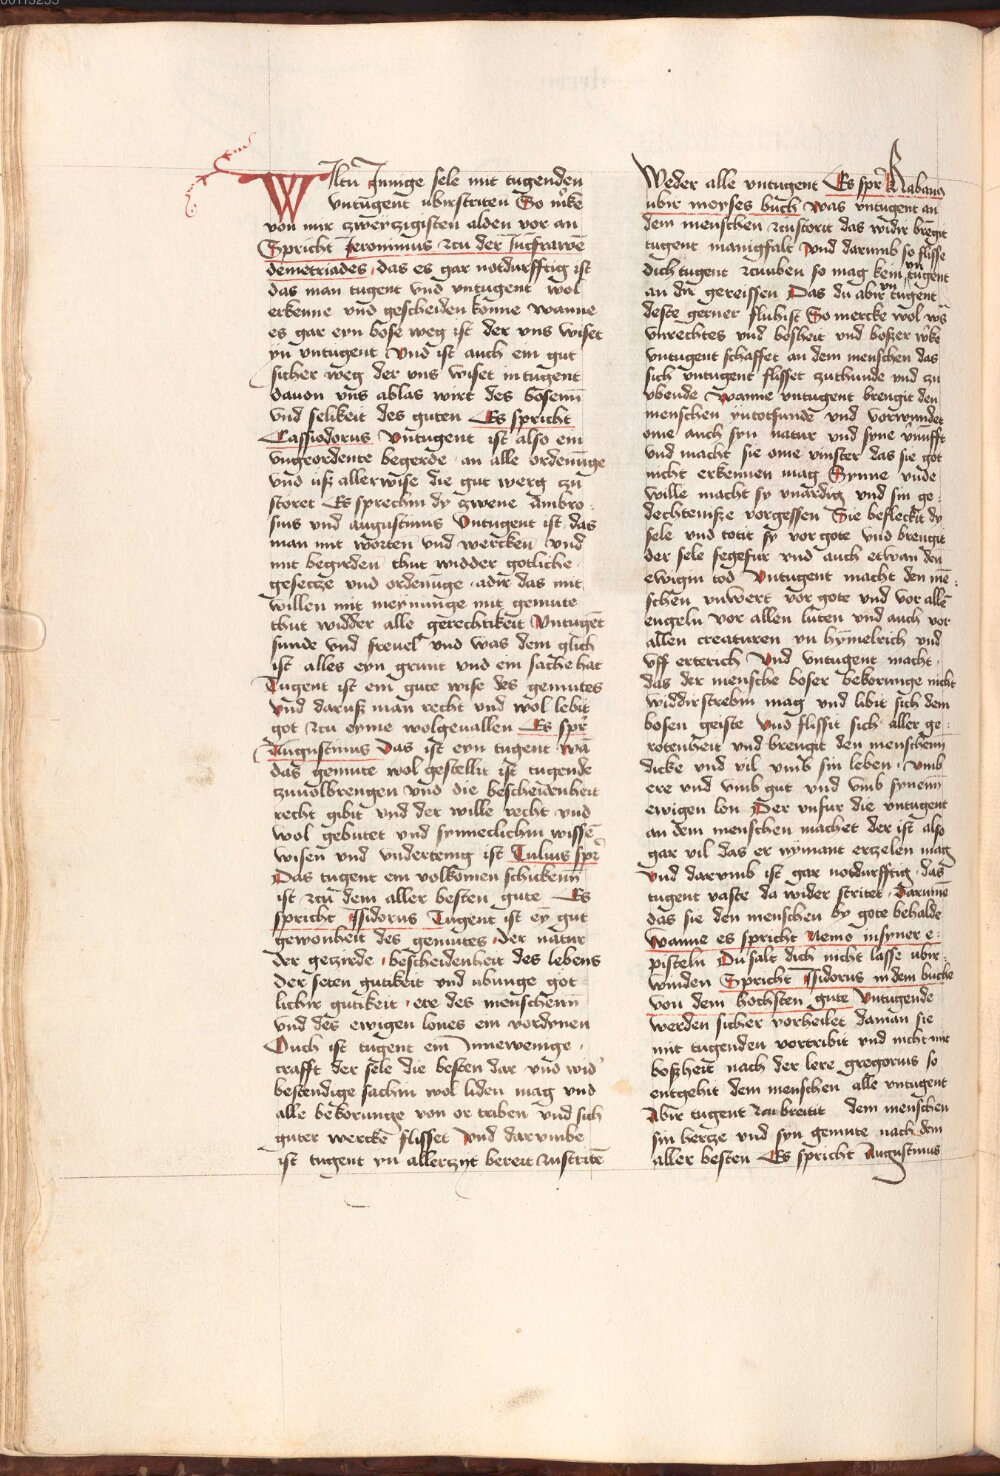 Wiltu Innige sele mit tugenden
untugent ubirstriten So mke
von mir zwenzigisten alden vor an
Spricht Jeronimus zcu der Jūcfrawē
demetriades das es gar notdurfftig ist
das man tugent vnd vntugent wol
erkenne vnd gescheiden konne wanne
es gar eyn bose weg ist der vns wiset
yn vntugent Vnd ist auch ein gut
sicher weg der vns wiset in tugent
Dauon vns ablas wirt des bosenn
vnd selikeit des guten Es spricht
Cassiodorus Vntugent ist also ein
vngeordente begerde an alle ordenūge
vnd usz allerwise die gut werg zu
storet Es sprechin dy zwene Ambro
sius vnd augustinus Vntugent ist das
man mit worten vnd wercken vnd
mit begirden thut widder gotliche
gesetze vnd ordenūge adir das mit
willen mit meynunge mit gemute
thut widder alle gerechtikeit Vntugēt
sunde vnd freuel vnd was dem glich
ist alles eyn grunt vnd ein sache hat
Tugent ist ein gute wise des gemutes
vnd darusz man recht vnd wol lebit
got zcu eyme wolgeuallen Es spr
Augustinus Das ist eyn tugent wā
das gemute wol gestellit ist tugende
zuuolbrengen vnd die bescheidenheit
recht gibit vnd der wille recht vnd
wol gebutet vnd synneclichin wissē
wisen vnd vndertenig ist Tulius spr
Das tugent ein volkomen schickenn
ist zcu dem aller besten gute Es
spricht Isidorus Tugent ist ey gut
gewonheit des gemutes der natur
Der gezirde bescheidenheit des lebens
Der seten gutikeit vnd ubunge got
lichir gutikeit ere des menschenn
vnd des ewigen lones ein vordynen
Ouch ist tugent ein Innewenige
crafft der sele die besten dar vnd wid
bestendige sachin wol liden mag vnd
alle bekorunge von or traben vnd sich
guter werckē flisset Vnd darumbe
ist tugent yn allerzyt bereit zustritē
Weder alle vntugent Es spr Rabanꝰ
ubir moyses buch Was vntugent an
dem menschen zcustorit das widir brēgit
tugent manigfalt Vnd darumb so flisse
dich tugent zcuuben so mag kein vn tugent
an dir gereissen Das du abir vn tugent
deste gerner fluhist So mercke wol ws
vnrechtes vnd bosheit vnd boszer wke
vntugent schaffet an dem menschen das
sich vntugent flisset zuthunde vnd zu
vbende Wanne vntugent brengit den
menschen yn totsunde vnd vorwundet
ome auch syn natur vnd syne vnūfft
vnd macht sie ome vinster das sie got
nicht erkennen mag Synne vnde
wille macht sy vnardig vnd sin ge
dechteniſze vorgessen Sie befleckit dy
sele vnd totit sy vor gote vnd brengit
der sele fegefur vnd auch etwan den
ewigin tod Vntugent macht den mē
schen vnwert vor gote vnd vor allē
engeln vor allen luten vnd auch vor
allen creaturen yn hymelrich vnd
vff erterich Vnd vntugent macht
das der mensche boser bekorunge nicht
widdirstrebin mag vnd libit sich dem
bosen geiste Vnd flissit sich aller ge
rotenheit vnd brengit den menschenn
dicke vnd vil vmb sin leben vmb
ere vnd vmb gut vnd vmb synenn
ewigen lon Der vnfur die vntugent
an dem menschen machet der ist also
gar vil das er nymant erzelen mag
Vnd darumb ist gar notdurfftig das
tugent vaste da wider stritet Darumē
das sie den menschen by gote behalde
Wanne es spricht Nemo in syner e
pisteln Du salt dich nicht lasse ubir
winden Spricht Isidorus in dem buche
von dem hochsten gute Vntugende
werden sicher vorheilet daman sie
mit tugenden vortribit vnd nicht mit
boszheit nach der lere gregorius so
entgehit dem menschen alle vntugent
Abir tugent zcubreitit dem menschen
sin hertze vnd syn gemute nach dem
aller besten Es spricht Augustinus